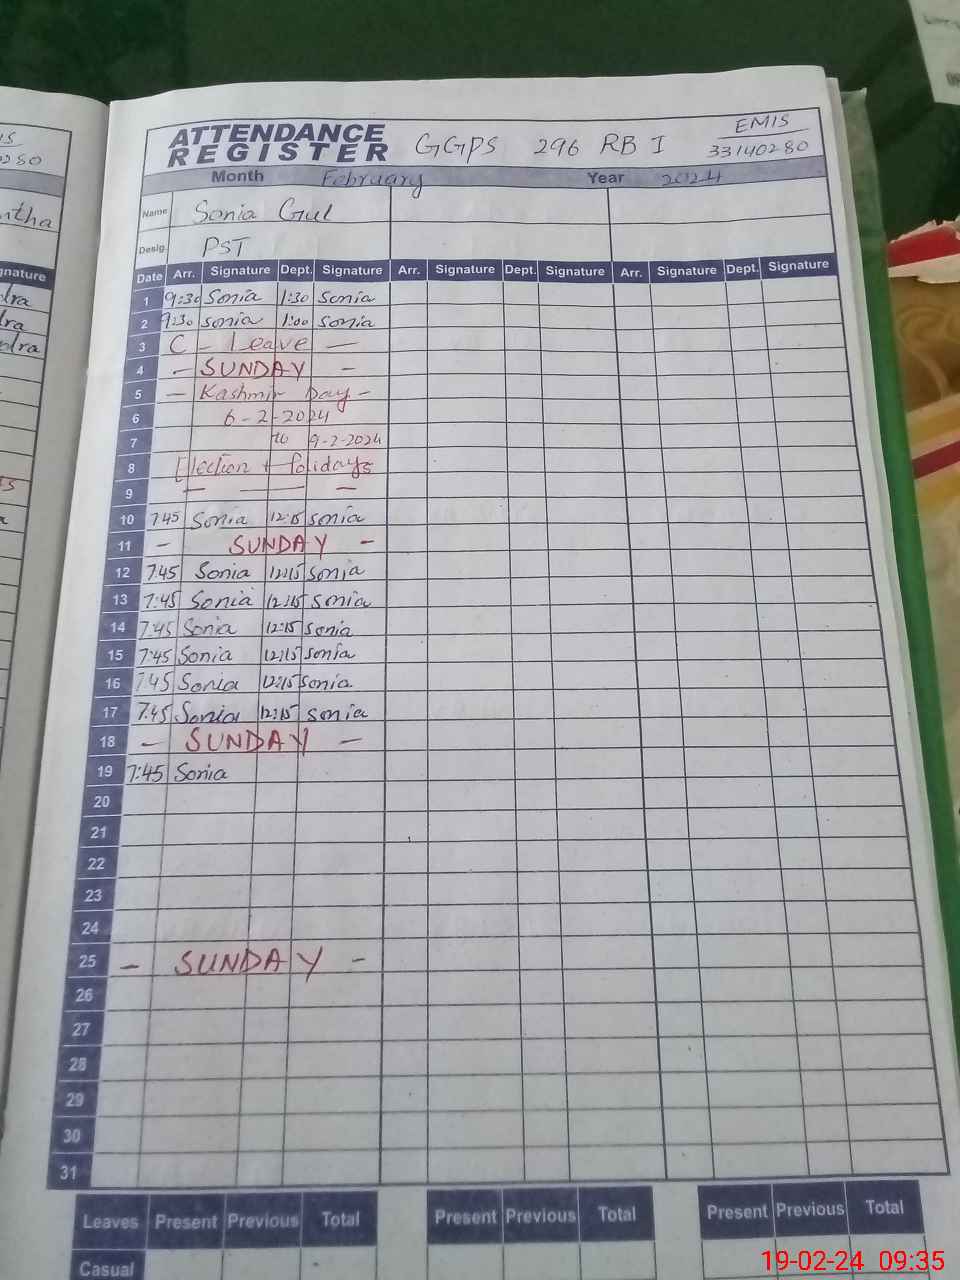 ATTENDANCE REGISTER GGPS 296 RB I EMIS 33140280
Month February Year 2024
Name Sonia Gul
Desig. PST
Date Arr. Signature Dept. Signature Arr. Signature Dept. Signature Arr. Signature Dept. Signature
1 9:30 Sonia 1:30 Sonia
2 9:30 Sonia 1:00 Sonia
3 C - Leave -
4 - SUNDAY -
5 - Kashmir Day -
6 6-2-2024
7 to 9-2-2024
8 Election + folidays
9 - - -
10 7:45 Sonia 12:15 Sonia
11 - SUNDAY -
12 7:45 Sonia 12:15 Sonia
13 7:45 Sonia 12:15 Sonia
14 7:45 Sonia 12:15 Sonia
15 7:45 Sonia 12:15 Sonia
16 7:45 Sonia 12:15 Sonia
17 7:45 Sonia 12:15 Sonia
18 - SUNDAY -
19 7:45 Sonia
20
21
22
23
24
25 - SUNDAY -
26
27
28
29
30
31
Leaves Present Previous Total Present Previous Total Present Previous Total
Casual
19-02-24 09:35